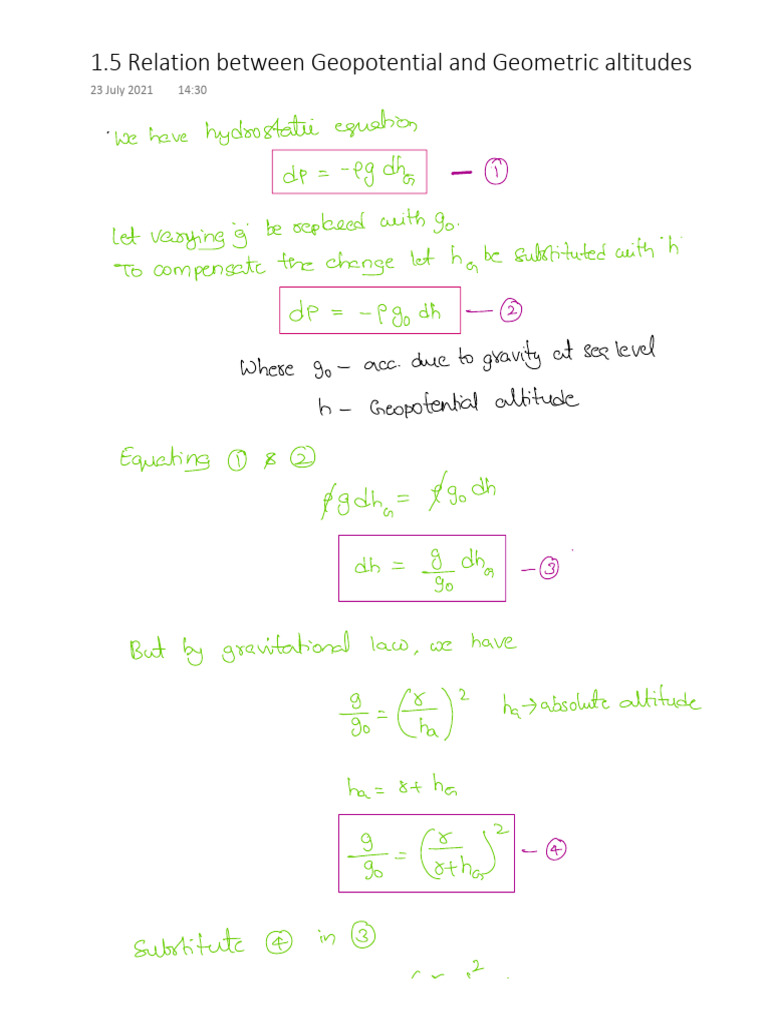 1.5 Relation between Geopotential and Geometric altitudes
23 July 2021 14:30
We have hydrostatic equation
dP = -ρg dh_G — ①
Let varying 'g' be replaced with g₀.
To compensate the change let h_G be substituted with 'h'
dP = -ρg₀ dh — ②
Where g₀ - acc. due to gravity at sea level
h - Geopotential altitude
Equating ① & ②
ρg dh_G = ρg₀ dh
dh = g/g₀ dh_G — ③
But by gravitational law, we have
g/g₀ = (r/h_a)² h_a → absolute altitude
h_a = r + h_G
g/g₀ = (r/(r+h_G))² — ④
Substitute ④ in ③